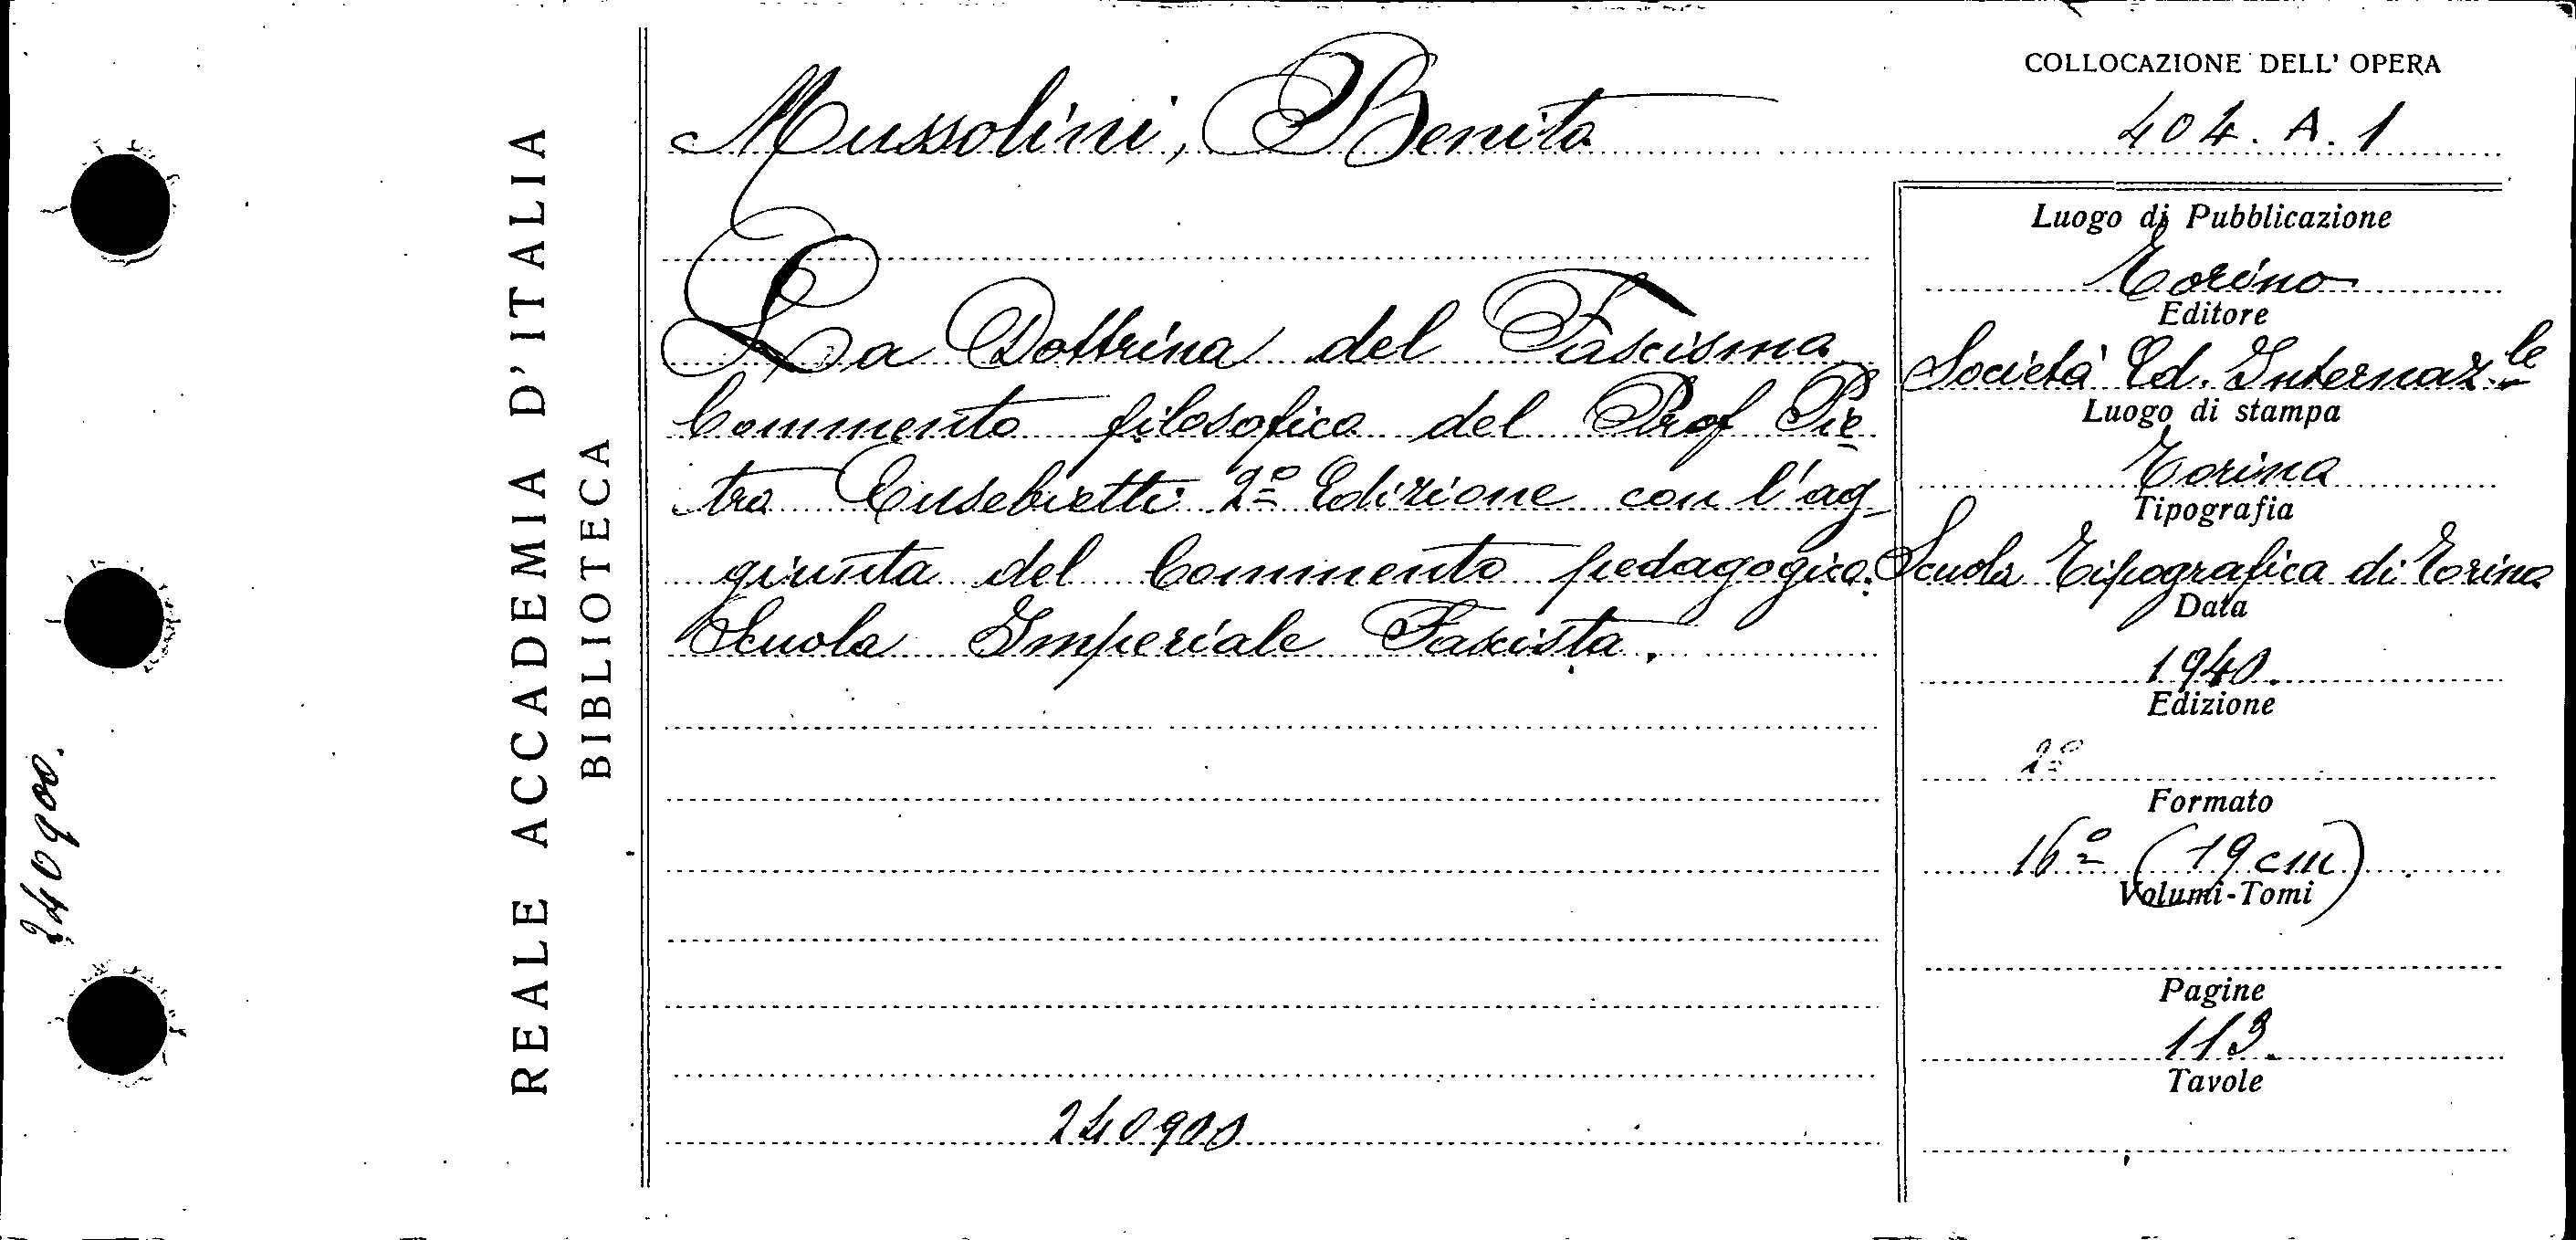 REALE ACCADEMIA D'ITALIA
BIBLIOTECA
240900.
Mussolini, Benito
La Dottrina del Fascismo
Commento filosofico del Prof Pie
tro Eusebietti 2º Edizione con l'ag-
giunta del Commento pedagogico.
Scuola Imperiale Fascista.
240900
COLLOCAZIONE DELL' OPERA
404. A. 1
Luogo di Pubblicazione
Torino
Editore
Società Ed. Internaz.le
Luogo di stampa
Torino
Tipografia
Scuola Tipografica di Torino
Data
1940.
Edizione
2º
Formato
16º (19 cm)
Volumi-Tomi
Pagine
113.
Tavole